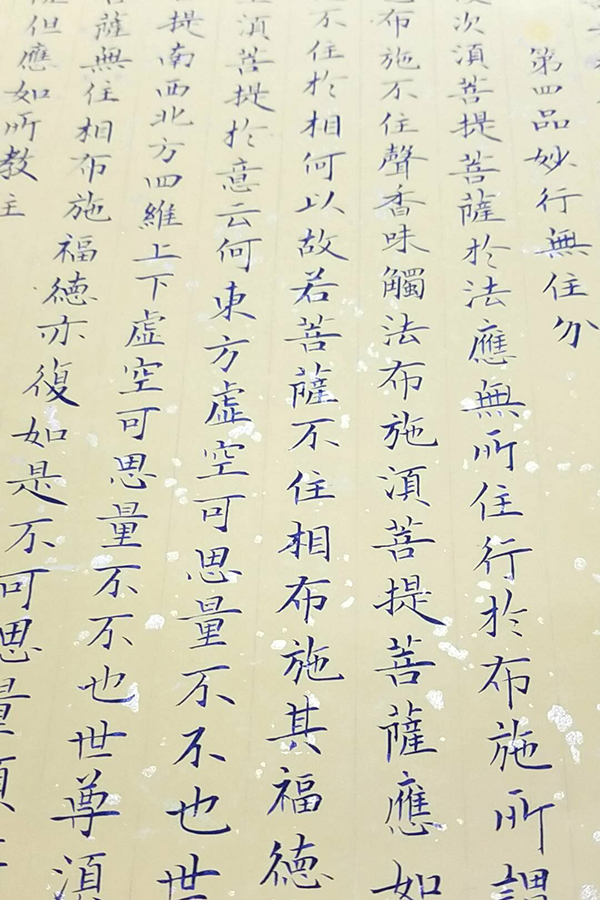 第四品妙行無住分
次湏菩提菩薩於法應無所住行於布施所謂
布施不住聲香味觸法布施湏菩提菩薩應如
不住於相何以故若菩薩不住相布施其福德
湏菩提於意云何東方虛空可思量不不也世
提南西北方四維上下虛空可思量不不也世尊湏
薩無住相布施福德亦復如是不可思量湏
但應如所教住